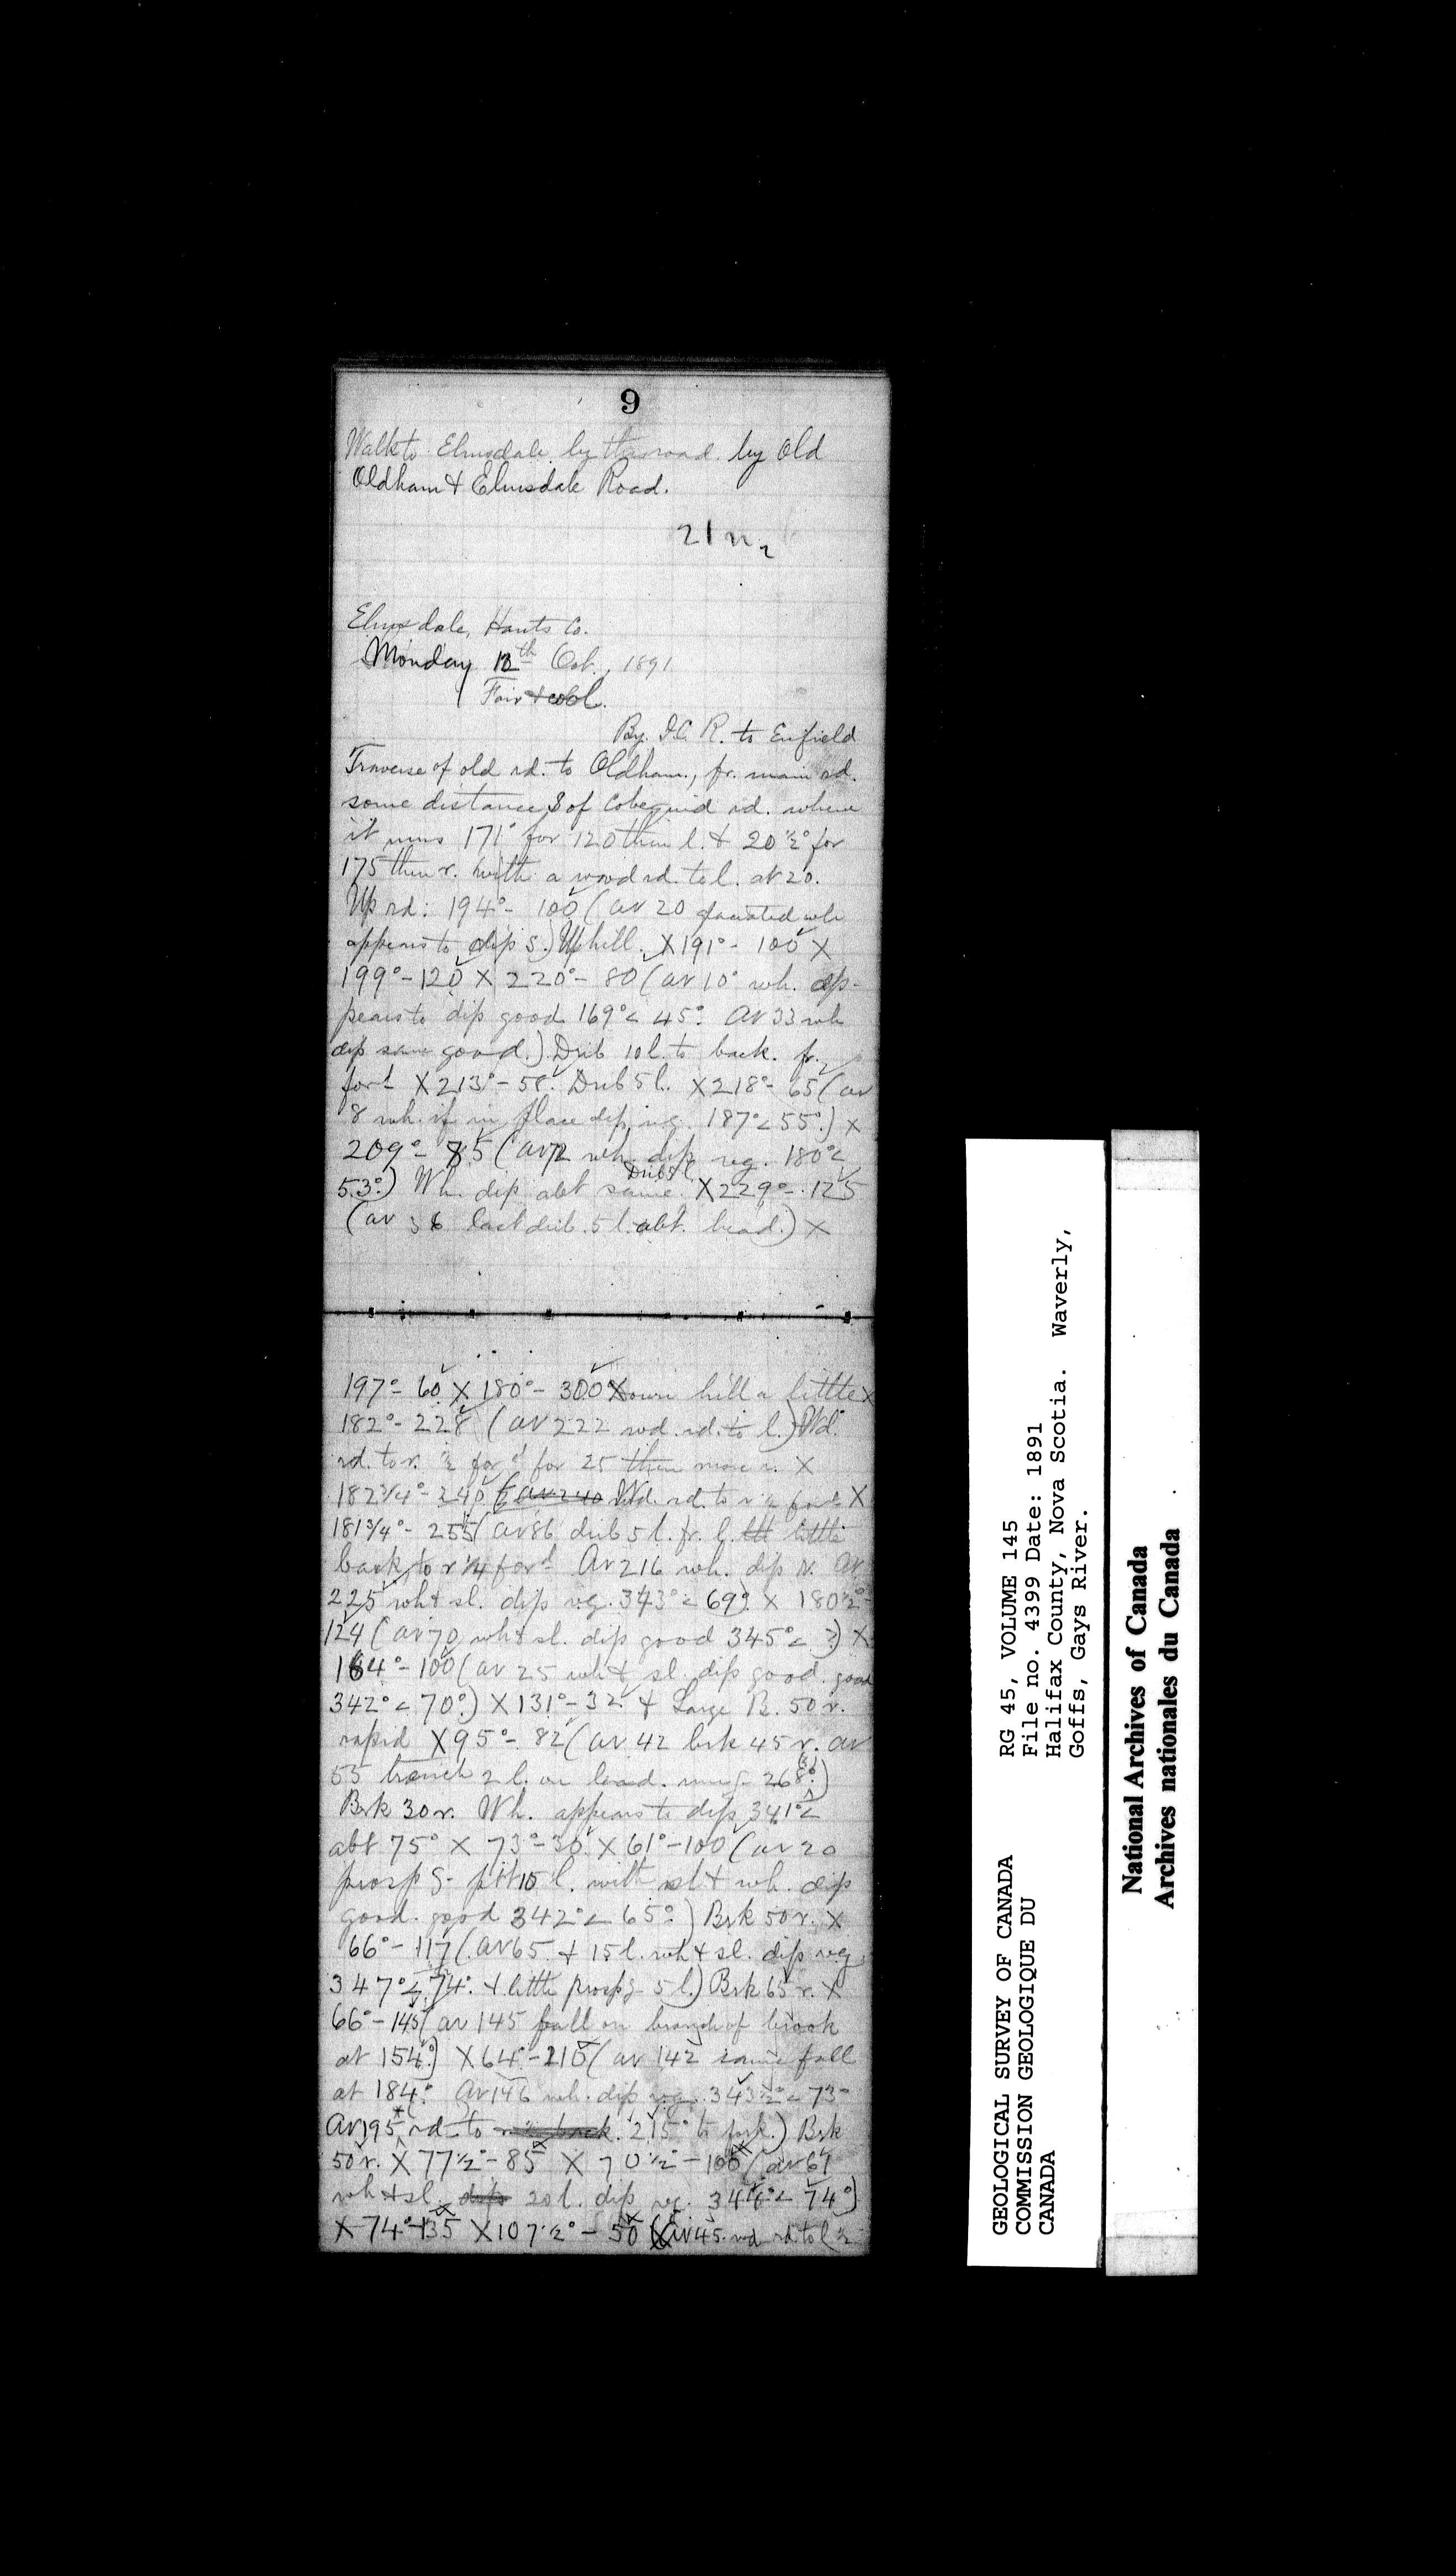 9
Walk to Elmsdale by by Old
Oldham & Elmsdale Road.
21
Elmsdale, Hants Co.
Monday 12th Oct., 1891
Fair & cool.
By I.C.R. to Enfield
Traverse of old rd. to Oldham, fr. main rd.
some distance S of Cobequid rd. where
it runs 171° for 120 then l. & 20½° for
175 then r. with a wood rd. to l. at 20.
Up rd: 194° - 100 (at 20 glaciated wh
appears to dip S.) Up hill. X 191° - 100 X
199° - 120 X 220° - 80 (at 10 wh. ap-
pears to dip good 169° < 45°. At 33 wh
dip same good.) Drib 10 l. to back. fr.
for'd X 213° - 58. Drib 5 l. X 218° - 65 (at
8 wh. if in place dip vg. 187° < 55°.) X
209° - 85 (at 72 wh. dip vg. 180° <
53°.) Wh. dip abt same. Drib 5 l. X 229° - 125
(at 36 last drib. 5 l. abt. head.) X
197° - 60 X 180° - 300 Down hill a little X
182° - 228 (at 222 wd. rd. to l.) Wd.
rd. to r. ½ for'd for 25 then more r. X
182¾° - 240 (at 240 Wd. rd. to r. ½ for'd X
181¾° - 255 (at 86 drib 5 l. fr. l. little
back to r ¼ for'd At 216 wh. dip N. At
225 wh & sl. dip vg. 343° < 69°. X 180½° -
124 (at 70 wh & sl. dip good 345° < ?) X
164° - 100 (at 25 wh & sl. dip good. good
342° < 70°.) X 131° - 32 & Large B. 50 r.
rapid X 95° - 82 (at 42 brk 45 r. at
55 trench 2 l. on lead. rung. 268°.)
Brk 30 r. Wh. appears to dip 341° <
abt 75° X 73° - 30 X 61° - 100 (at 20
prospg. pit 15 l. with sl & wh. dip
good. good 342° < 65°.) Brk 50 r. X
66° - 117 (at 65 & 15 l. wh & sl. dip vg
347° < 74°. & little prospg. 5 l.) Brk 65 r. X
66° - 145 (at 145 fall on branch of brook
at 154°.) X 64° - 210 (at 142 same fall
at 184°. At 146 wh. dip vg. 343½° < 73°
At 195 rd. to 215° to fork.) Brk
50 r. X 77½° - 85 X 70½° - 100 (at 61
wh & sl. dip 20 l. dip vg. 344° < 74°)
X 74° - 135 X 107½° - 50 (At 45 wd rd to l ½
GEOLOGICAL SURVEY OF CANADA
COMMISSION GEOLOGIQUE DU
CANADA
RG 45, VOLUME 145
File no. 4399 Date: 1891
Halifax County, Nova Scotia. Waverly,
Goffs, Gays River.
National Archives of Canada
Archives nationales du Canada